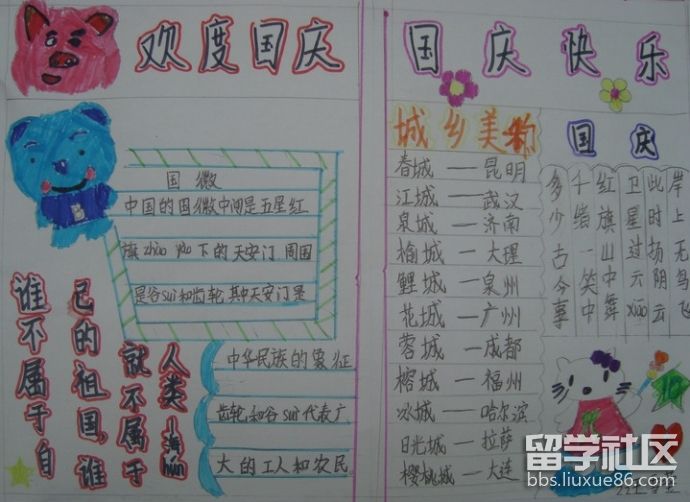 欢度国庆
国徽
中国的国徽中间是五星红
旗 zhào yào 下的天安门 周围
是谷 suì 和齿轮 其中天安门是
中华民族的象征
齿轮和谷 suì 代表广
大的工人和农民
谁不属于自
己的祖国,谁
就不属于
人类——海 hún
国庆快乐
城乡美韵
春城——昆明
江城——武汉
泉城——济南
榆城——大理
鲤城——泉州
花城——广州
蓉城——成都
榕城——福州
冰城——哈尔滨
日光城——拉萨
樱桃城——大连
国庆
岸上无鸟飞
此时扬阴云
卫星过云 xiāo
红旗山中舞
千绪一笑中
多少古今事
留学社区
bbs.liuxue86.com